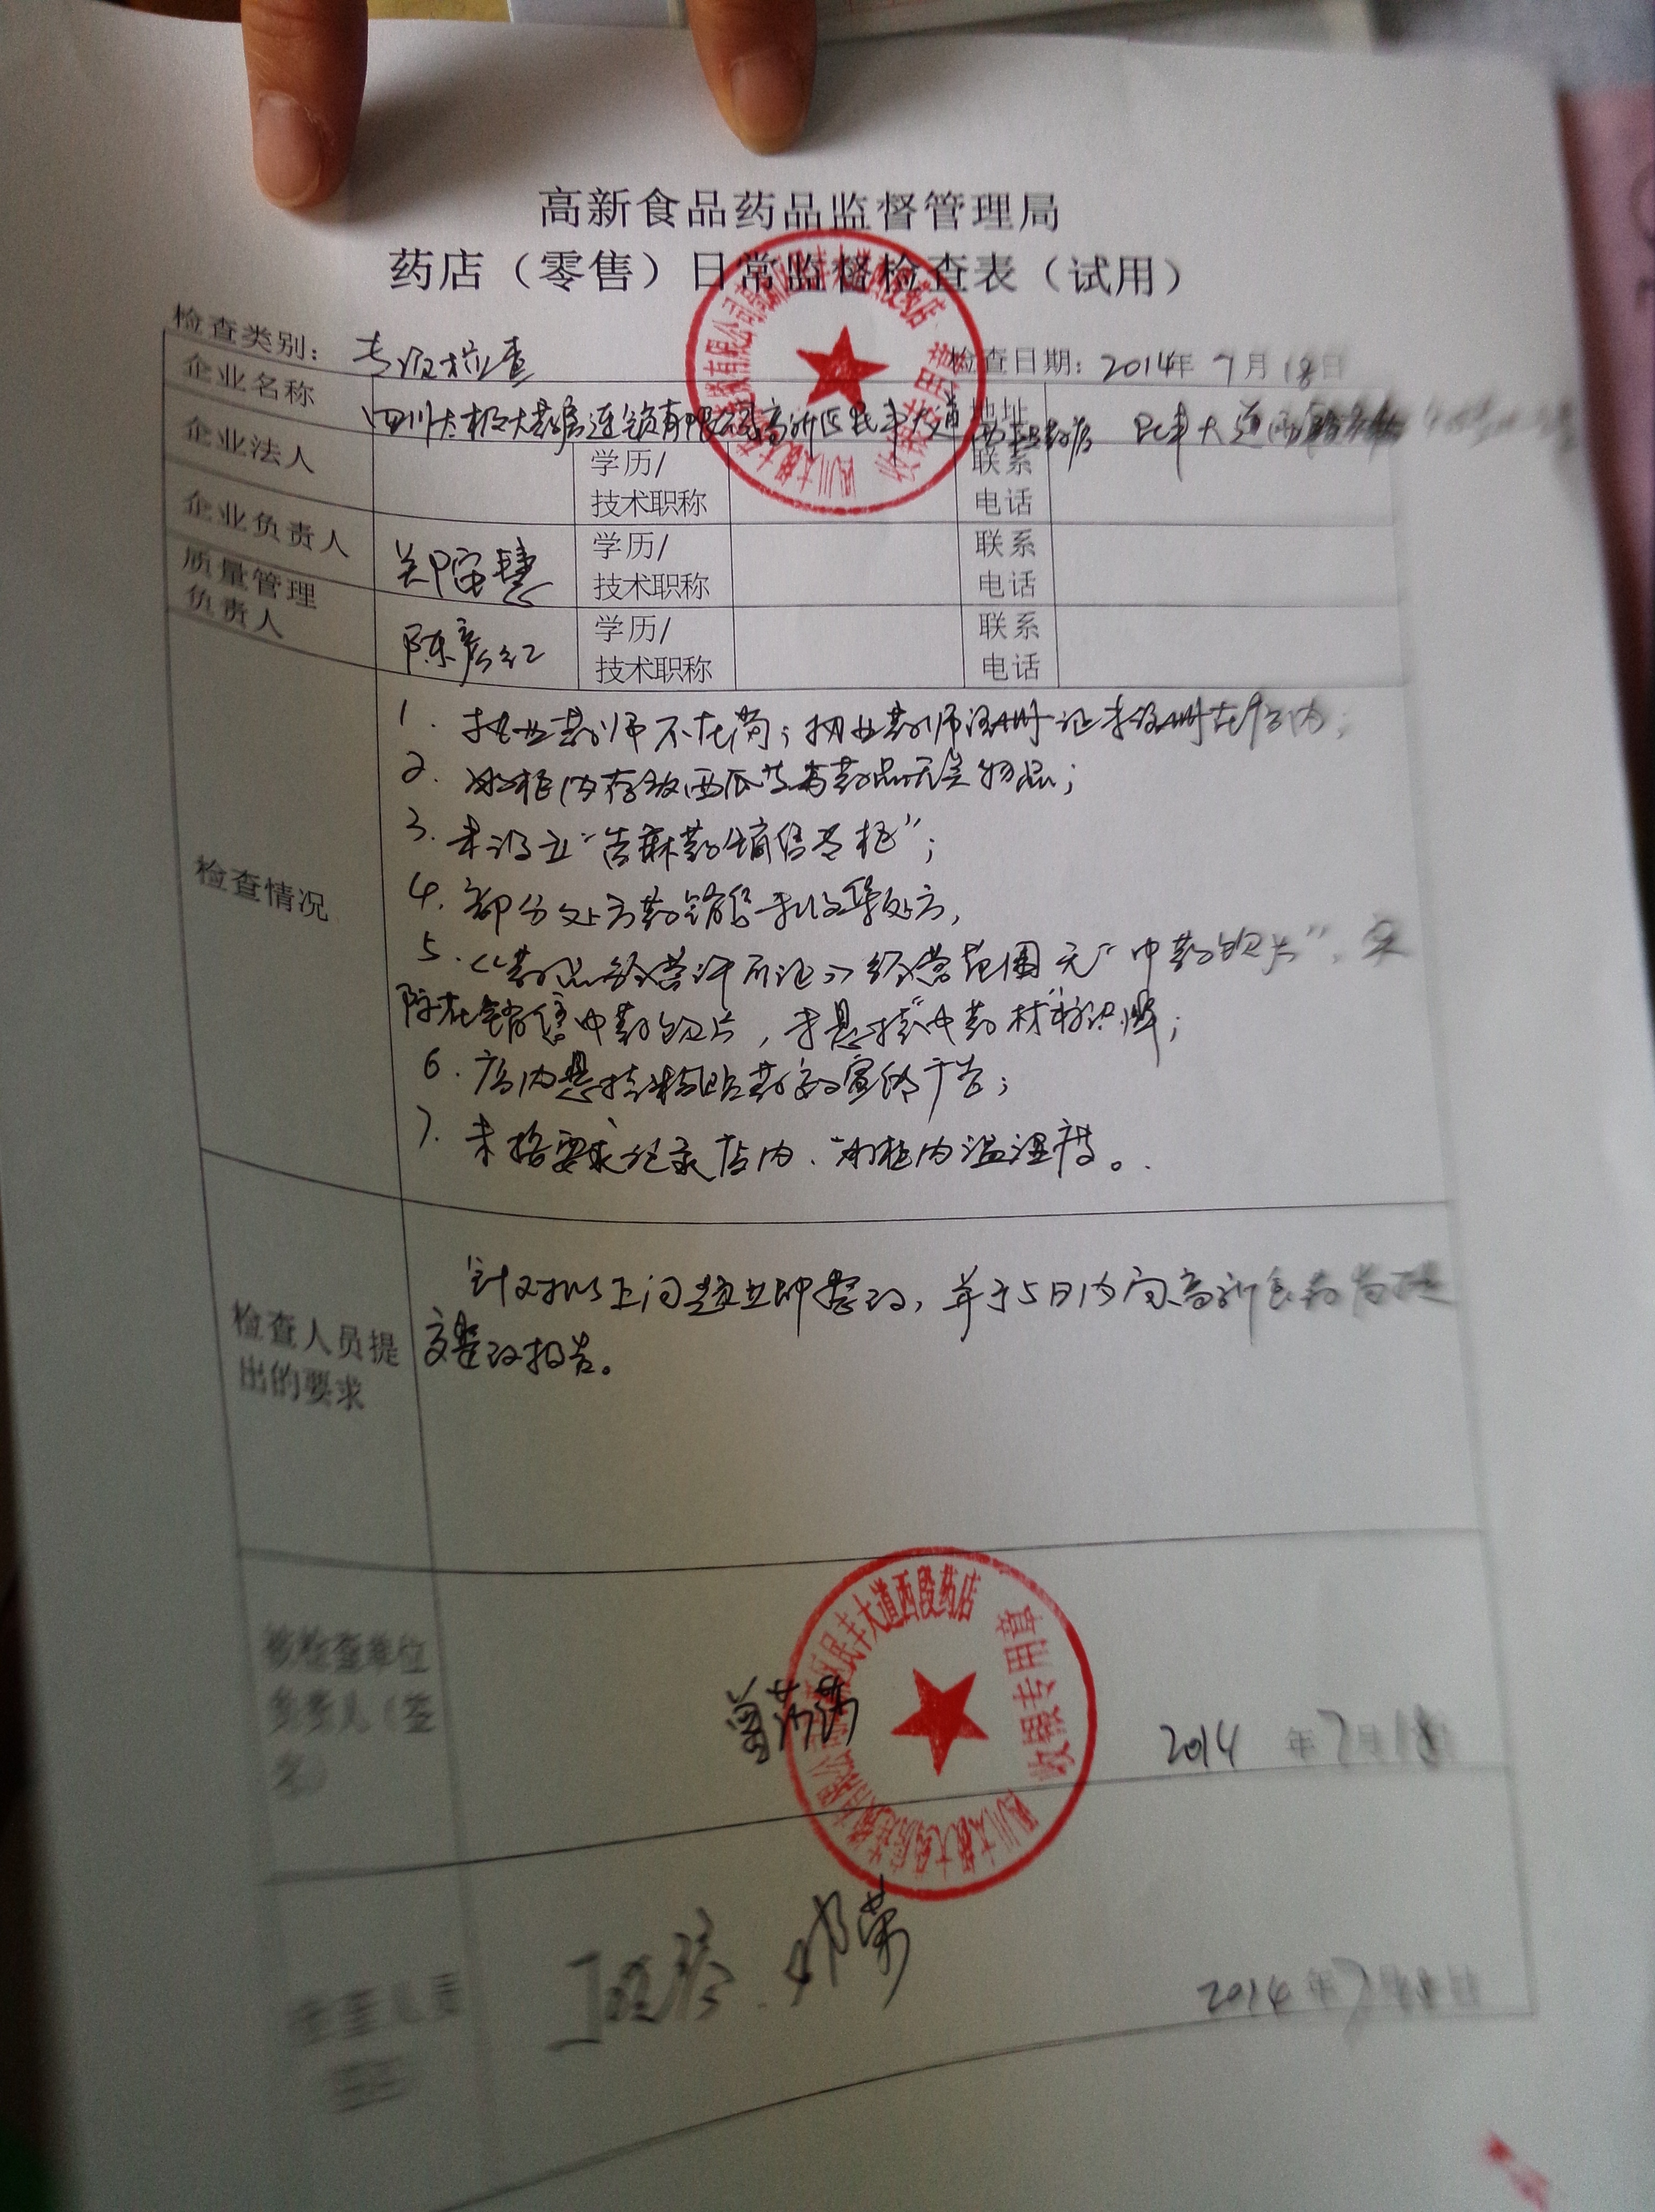 高新食品药品监督管理局
药店（零售）日常监督检查表（试用）
检查类别： 专项检查 检查日期：2014年 7月18日
企业名称 四川太极大药房连锁有限公司高新区民丰大道西段药店 地址 民丰大道西段
企业法人 学历/技术职称 联系电话
企业负责人 学历/技术职称 联系电话
质量管理负责人 陈彦红 学历/技术职称 联系电话
检查情况
1. 执业药师不在岗；执业药师注册证未注册在店内；
2. 冰柜内存放西瓜等与药品无关物品；
3. 未设立“含麻药销售专柜”；
4. 部分处方药销售未收集处方，
5. 《药品经营许可证》经营范围无“中药饮片”，实
际在销售中药饮片，未悬挂“中药材”标识牌；
6. 店内悬挂粘贴药品宣传广告；
7. 未按要求记录店内、冰柜内温湿度。
检查人员提出的要求
针对以上问题立即整改，并于5日内向高新食药局提
交整改报告。
被检查单位负责人（签名） 2014 年7月18
2014 年7月18日
四川太极大药房连锁有限公司高新区民丰大道西段药店
收银专用章